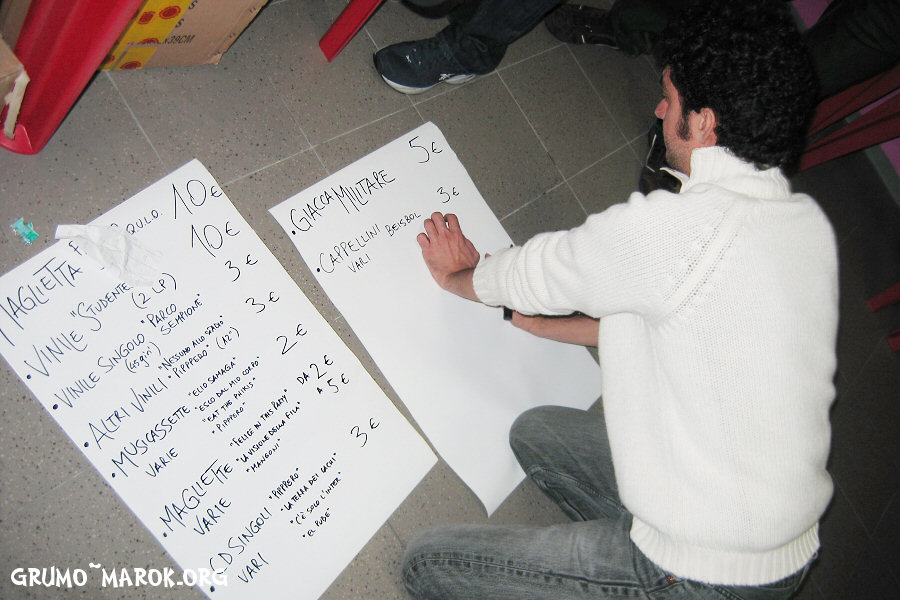 MAGLIETTA 10€
VINILE "STUDENTE 10€
(2 LP)
• VINILE SINGOLO "PARCO SEMPIONE" 3€
(45 giri)
• ALTRI VINILI "NESSUNO ALLO STADIO" 3€
"PIPPPERO" (12")
• MUSICASSETTE VARIE "ELIO SAMAGA" 2€
"ESCO DAL MIO CORPO"
"EAT THE PHIKIS"
"PIPPPERO"
• MAGLIETTE VARIE "FELICE IN THIS PARTY" DA 2€ A 5€
"LA VISIONE DELLA FILA"
"MANGONI"
• CD SINGOLI VARI "PIPPERO" 3€
"LA TERRA DEI CACHI"
"C'È SOLO L'INTER"
"EL PUBE"
• GIACCA MILITARE 5€
• CAPPELLINI BEISBOL 3€
VARI
N39CM
GRUMO~MAROK.ORG